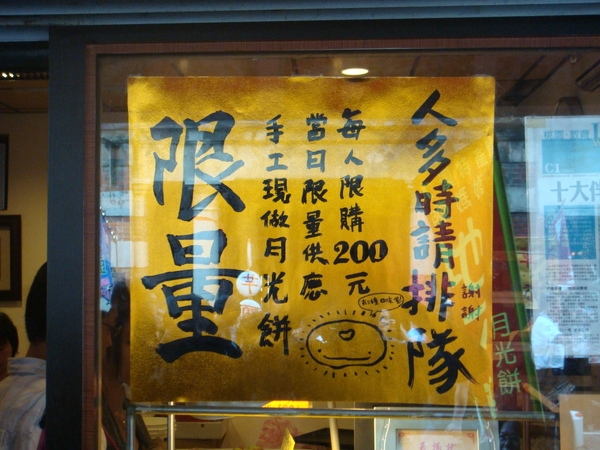 人多時請排隊
謝謝
每人限購200元
當日限量供應
手工現做月光餅
限量
月光餅
十大伴